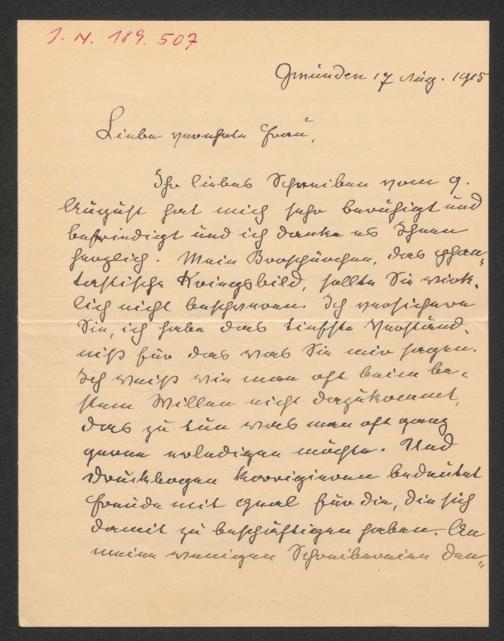 J. N. 189.507
Gmunden 17 Aug. 1915
Liebe verehrte Frau,
Ihr liebes Schreiben vom 9.
August hat mich sehr beruhigt und
befriedigt und ich danke es Ihnen
herzlich. Mein Broschürchen, das phan-
tastische Kriegsbild, sollte Sie wirk-
lich nicht beschweren. Ich versichere
Sie, ich habe das tiefste Verständ-
niß für das was Sie mir sagen.
Ich weiß wie man oft beim be-
sten Willen nicht dazukommt,
das zu tun was man oft ganz
gerne erledigen möchte. Und
Druckbogen korrigieren bedeutet
Freude mit Qual für die, die sich
damit zu beschäftigen haben. An
meine wenigen Schreibereien den-